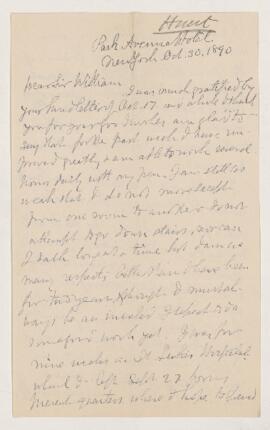 Hunt
Park Avenue Hotel
New York Oct. 30. 1890
My dear Sir William,
I was much gratified by
your kind letter of Oct 17. and while I thank
you for your good wishes am glad to
say that for the past week I have im-
proved greatly, & am able to work several
hours daily with my pen. I am still so
weak that I do not move except
from one room to another & do not
attempt to go down stairs, nor can
I talk long at a time but I am in
many respects better than I have been
for two years, though I must al-
ways be an invalid I expect to do
some good work yet. I was for
nine weeks in St Lukes Hospital
which I left Sept. 27 for my
present quarters where I hope to spend